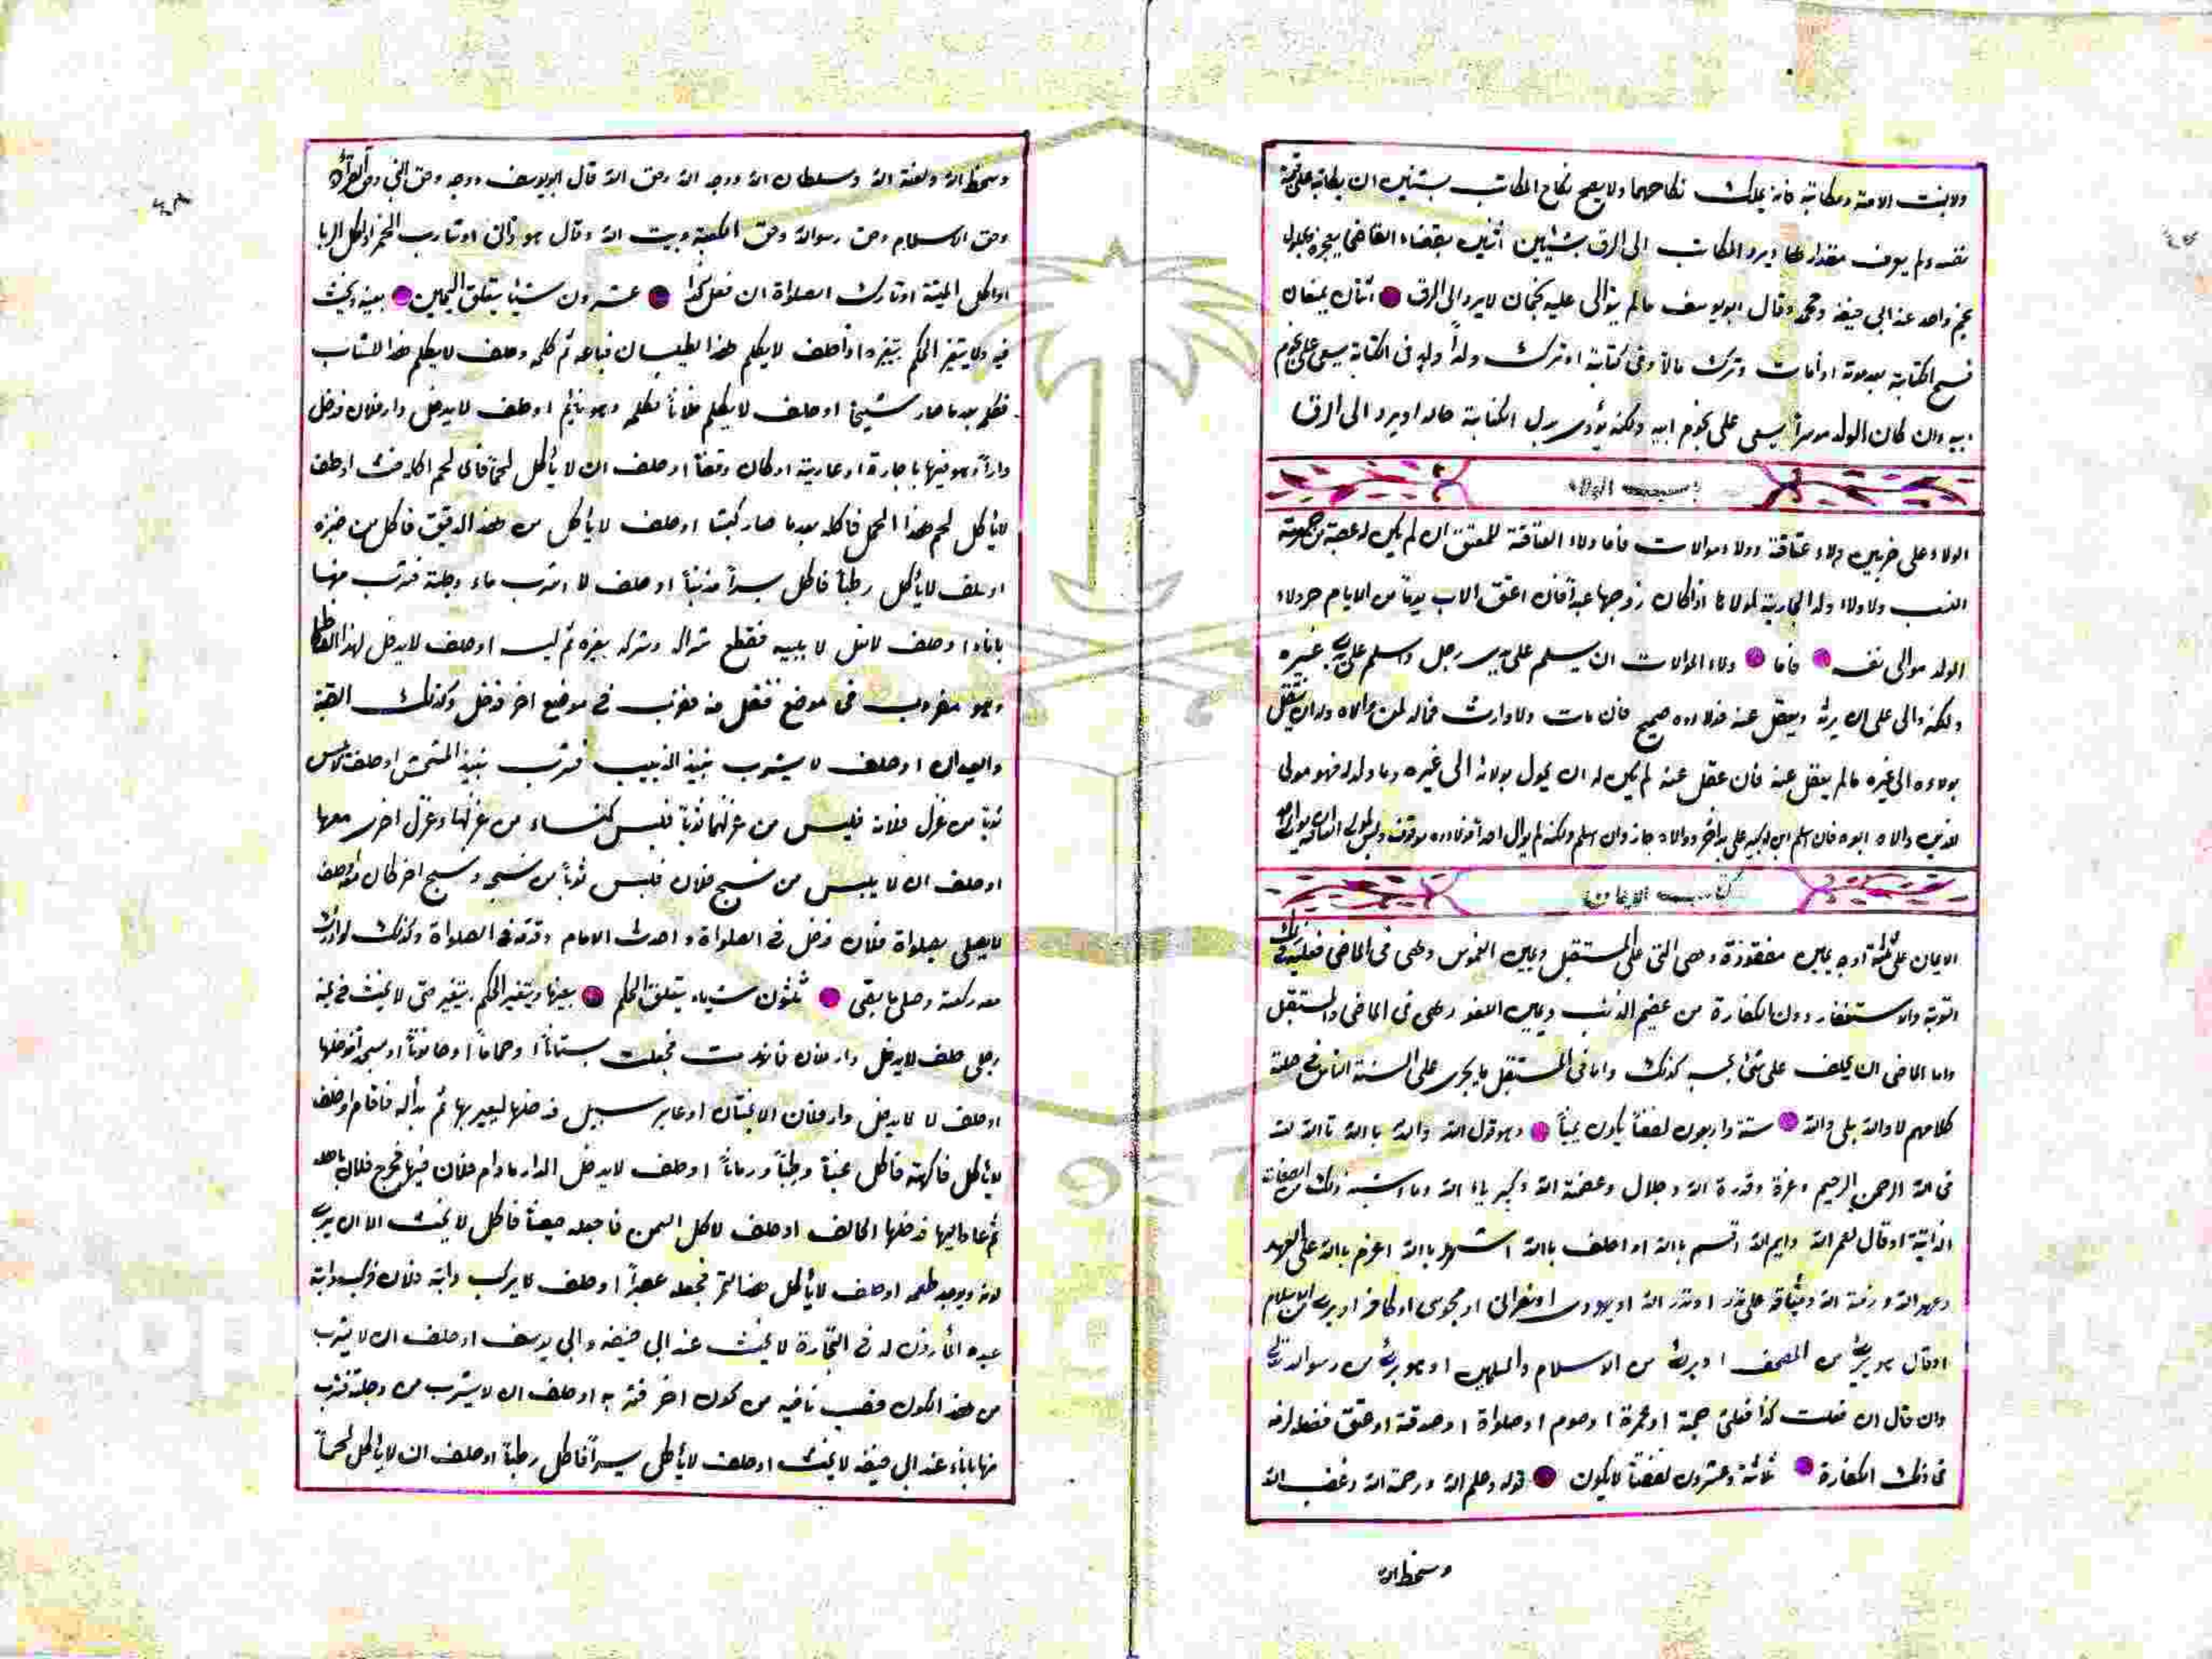 ولابنت الامة ومكاتبة فانه يملك نكاحهما ولا يصح نكاح المكاتب بشيئين ان يكاتبه على قيمة
نفسه ولم يعرف مقدارها ويرد المكاتب الى الرق بشيئين اثنين بقضاء القاضي بعجزه
نجم واحد عند ابي حنيفة ومحمد وقال ابو يوسف مالم يتوالى عليه نجمان لا يرد الى الرق اثنان يمنعان
فسخ الكتابة بعد موته اذا مات وترك مالا وفى كتابة او ترك ولداً ولد فى الكتابة يسعى على نجوم
ابيه وان كان الولد يسعى على نجوم ابيه ولكنه يؤدي بدل الكتابة حالا او يرد الى الرق
الولاء
الولاء على ضربين ولاء عتاقة وولاء موالات فاما ولاء العتاقة للمعتق ان لم يكن له عصبة من جهة
النسب ولا ولاء ولد الجارية لمولاها اذا كان زوجها عبداً فان اعتق الاب يوماً من الايام جر ولاء
الولد موالى نفسه فاما ولاء الموالات ان يسلم على يدي رجل واسلم على يدي غيره
ولكنه والى على ان يرثه ويعقل عنه فولاءه صحيح فان مات ولا وارث فماله لمن والاه وله ان ينتقل
بولاءه الى غيره مالم يعقل عنه فان عقل عنه لم يكن له ان يحول بولائه الى غيره وما ولد له فهو مولى
للذي والاه ابوه فان اسلم ابن له كبير على يد اخر ووالاه جاز وان اسلم ولكنه لم يوال احداً فولاءه موقوف
كتاب الايمان
الايمان على ثلثة اوجه يمين معقودة وهى التى على المستقبل ويمين الغموس وهى فى الماضى فعليه فى ذلك
التوبة والاستغفار دون الكفارة من عظيم الذنب ويمين اللغو وهى فى الماضى والمستقبل
واما الماضى ان يحلف على شئ يحسبه كذلك واما فى المستقبل ما يجرى على السنة الناس فى صلة
كلامهم لا والله بلى والله ستة واربعون لفظاً يكون يميناً وهو قول الله والله بالله تالله لله
فى الله الرحمن الرحيم وعزة وقدرة الله وجلال وعظمة الله وكبرياء الله وما اشبه ذلك من الصفات
الذاتية او قال لعمر الله وايم الله اقسم بالله او احلف بالله اشهد بالله اعزم بالله على العهد
وعهد الله وذمة الله وميثاقه على نذر او نذر الله او يهودي او نصرانى او مجوسى او كافر او برئ من الاسلام
او قال هو برئ من المصحف او برئ من الاسلام والمسلمين او هو برئ من رسوالله
وان قال ان فعلت كذا فعلى حجة او عمرة او صوم او صلواة او صدقة او عتق
فى ذلك الكفارة ثلاثة وعشرون لفظاً لا يكون قوله وعلم الله ورحمة الله وغضب الله
وسخط الله
وسخط الله ولعنة الله وسلطان الله ووجه الله وحق الله قال ابو يوسف ووجه وحق النبي وحق القرآن
وحق الاسلام وحق رسوالله وحق الكعبة وبيت الله وقال هو زانى او شارب الخمر او اكل الربا
او اكل الميتة او تارك الصلواة ان فعل كذا عشرون شيئا يتعلق اليمين بعينه ويحنث
فيه ولا يتغير الحكم بتغيره اذا حلف لا يكلم هذا الطيلسان فباعه ثم كلمه وحلف لا يكلم هذا الشاب
فكلم بعد ما صار شيخا او حلف لا يكلم فلاناً فكلمه وهو نايم او حلف لا يدخل دار فلان فدخل
داراً وهو فيها باجارة او عارية او كان وقفاً او حلف ان لا ياكل لحماً فاى لحم اكله حنث او حلف
لا ياكل لحم هذا الحمل فاكله بعدما صار كبشا او حلف لا ياكل من هذ الدقيق فاكل من خبزه
او حلف لا ياكل رطباً فاكل بسراً مذنباً او حلف لا اشرب ماء دجلة فشرب منها
باناء او حلف لا يلبسه فقطع وتركه بغيره ثم لبس او حلف لا يدخل لهذا الفسطاط
وهو مضروب فى موضع فنقل منه فضرب فى موضع اخر فدخل وكذلك القبة
او حلف لا يشرب نبيذ الزبيب فشرب نبيذ المشمش او حلف لا يلبس
ثوبا من غزل فلانة فلبس من غزلها ثوباً فلبس كساء من غزلها وغزل اخرى معها
او حلف ان لا يلبس من نسج فلان فلبس ثوباً من نسجه ونسج اخر كان معه او حلف
لا يصلى بصلواة فلان فدخل فى الصلواة واحدث الامام وقدمه فى الصلواة وكذلك لو ادرك
معه ركعة وصلى ما بقى ثلثون شياء يتعلق الحكم بعينها ويتغير الحكم بتغير حتى لا يحنث فى يمينه
رجل حلف لا يدخل دار فلان فانهدمت فجعلت بستاناً او حماماً او حانوتاً او مسجداً فدخلها
او حلف لا يدخل دار فلان الا عابر سبيل فدخلها ليعبر بها ثم بدا له فاقام او حلف
لا ياكل فاكهة فاكل عنباً ورطباً ورماناً او حلف لا يدخل الدار مادام فلان فيها فخرج فلان باهله
ثم عاد اليها فدخلها الحالف او حلف لا كل السمن فاجعله خبيصاً فاكل لا يحنث الا ان يرى
لونه ويوجد طعمه او حلف لا ياكل هذا التمر فجعله عصيراً او حلف لا يركب دابة فلان فركب دابة
عبده المأذون له فى التجارة لا يحنث عند ابي حنيفة وابي يوسف او حلف ان لا يشرب
من هذ الكوز فصب مافيه من كوز اخر فشربه او حلف ان لا يشرب من دجلة فشرب
منها باناء عند ابي حنيفة لا يحنث او حلف لا ياكل بسراً فاكل رطباً او حلف ان لا ياكل لحماً